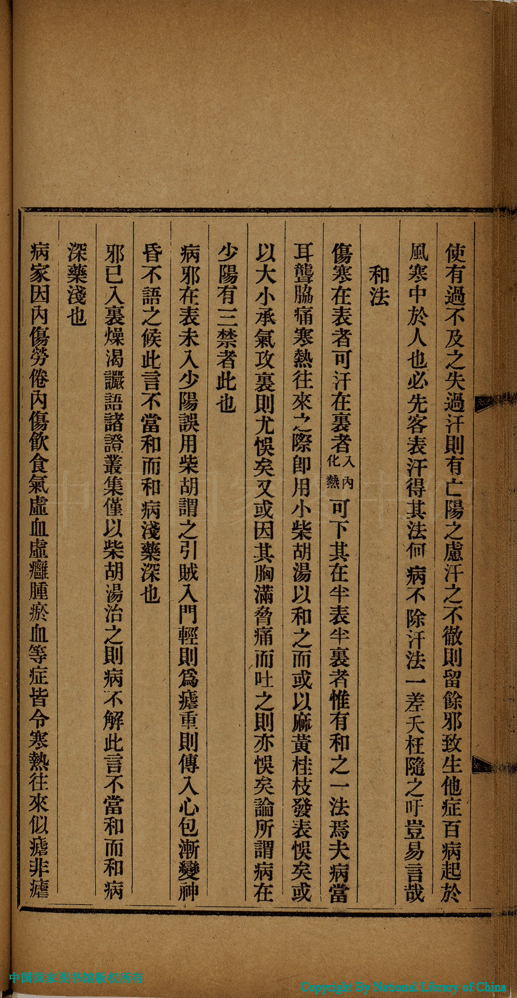 使有過不及之失過汗則有亡陽之慮汗之不徹則留餘邪致生他症百病起於
風寒中於人也必先客表汗得其法何病不除汗法一差夭枉隨之吁豈易言哉
和法
傷寒在表者可汗在裏者入內化熱可下其在半表半裏者惟有和之一法焉夫病當
耳聾脇痛寒熱往來之際卽用小柴胡湯以和之而或以麻黃桂枝發表悞矣或
以大小承氣攻裏則尤悞矣又或因其胸滿脅痛而吐之則亦悞矣論所謂病在
少陽有三禁者此也
病邪在表未入少陽誤用柴胡謂之引賊入門輕則爲瘧重則傳入心包漸變神
昏不語之候此言不當和而和病淺藥深也
邪已入裏燥渴讝語諸證叢集僅以柴胡湯治之則病不解此言不當和而和病
深藥淺也
病家因內傷勞倦內傷飲食氣虛血虛癰腫瘀血等症皆令寒熱往來似瘧非瘧
Copyright By National Library of China